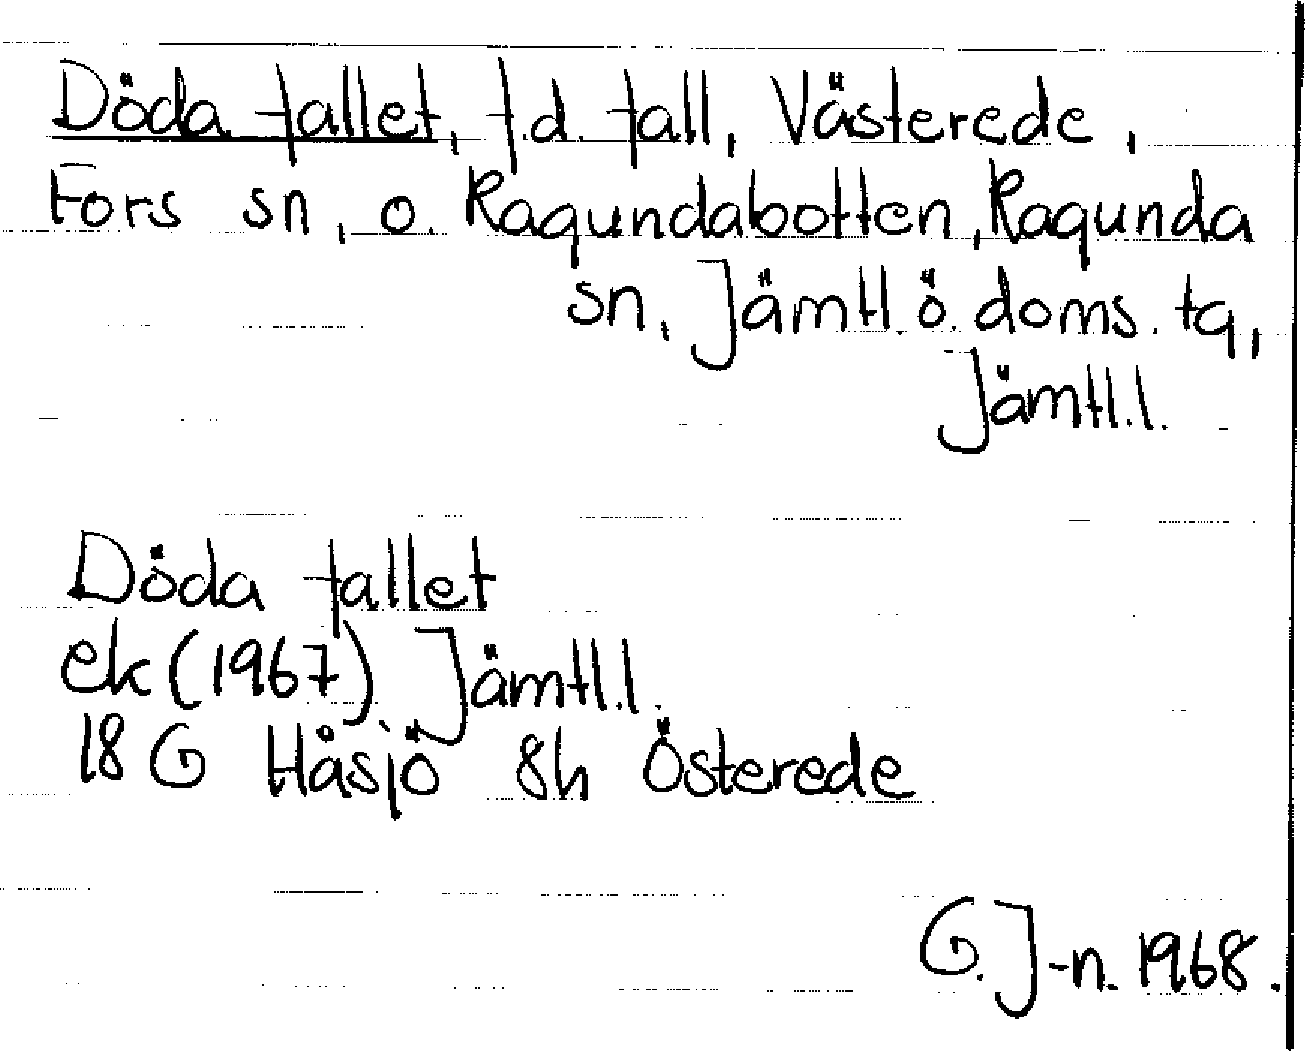 Döda fallet, f.d. fall, Västerede,
Fors sn, o. Ragundabotten, Ragunda
sn, Jämtl. ö. doms. tg,
Jämtl.l.
Döda fallet
ek (1967) Jämtl.l.
18 G Håsjö 8h Österede
G. J-n. 1968.